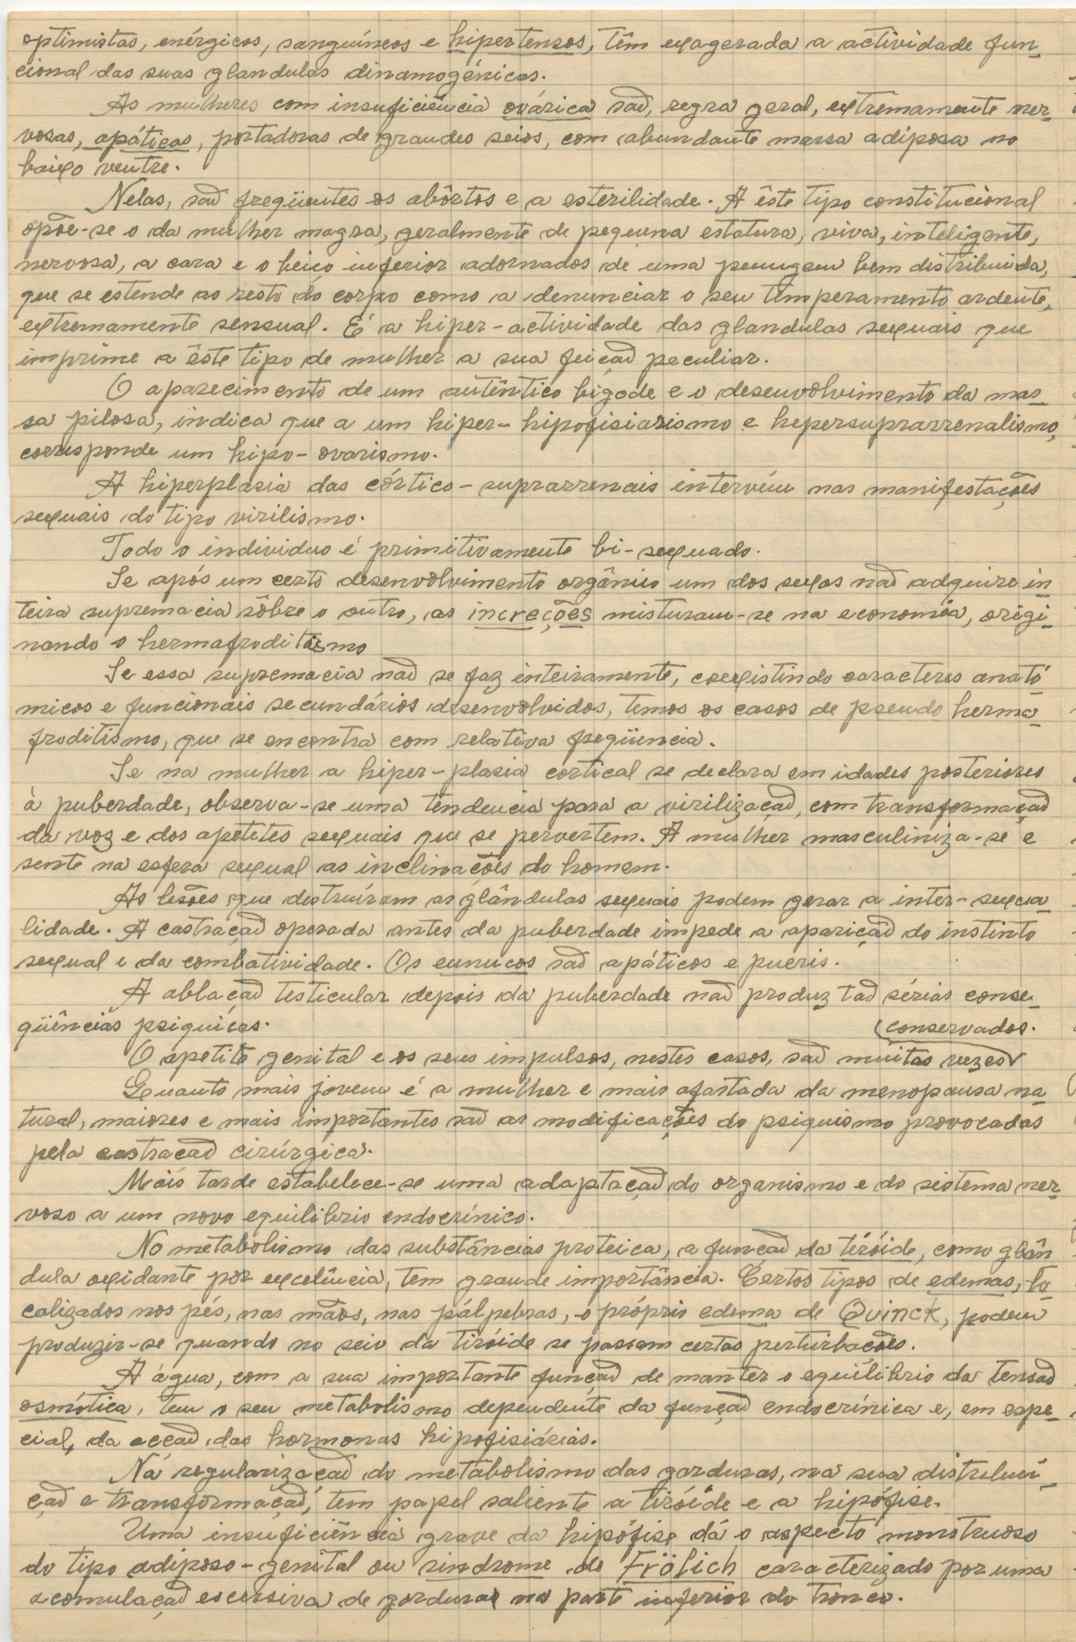 optimistas, enérgicos, sanguíneos e hipertensos, têm exagerada a actividade fun-
cional das suas glandulas dinamogénicas.
As mulheres com insuficiência ovárica são, regra geral, extremamente ner-
vosas, apáticas, portadoras de grandes seios, com abundante massa adiposa no
baixo ventre.
Nelas, são freqüentes os abôrtos e a esterilidade. A êste tipo constitucional
opõe-se o da mulher magra, geralmente de pequena estatura, viva, inteligente,
nervosa, a cara e o beiço inferior adornados de uma penugem bem distribuida,
que se estende ao resto do corpo como a denunciar o seu temperamento ardente,
extremamente sensual. É a hiper-actividade das glandulas sexuais que
imprime a êste tipo de mulher a sua feição peculiar.
O aparecimento de um autêntico bigode e o desenvolvimento da mas-
sa pilosa, indica que a um hiper-hipofisiarismo e hepersuprarrenalismo,
corresponde um hipo-ovarismo.
A hiperplasia das córtico-suprarrenais intervém nas manifestações
sexuais do tipo virilismo.
Todo o individuo é primitivamente bi-sexuado.
Se após um certo desenvolvimento orgânico um dos sexos não adquire in-
teira supremacia sôbre o outro, as increções misturam-se na economia, origi-
nando o hermafroditismo
Se essa supremacia não se faz inteiramente, coexistindo caracteres anató-
micos e funcionais secundários desenvolvidos, temos os casos de pseudo herma-
froditismo, que se encontra com relativa freqüencia.
Se na mulher a hiper-plasia cortical se declara em idades posteriores
à puberdade, observa-se uma tendencia para a virilização, com transformação
da voz e dos apetites sexuais que se pervertem. A mulher masculiniza-se e
sente na esfera sexual as inclinações do homem.
As lesões que destruíram as glândulas sexuais podem gerar a inter-sexua-
lidade. A castração operada antes da puberdade impede a aparição do instinto
sexual e da combatividade. Os eunucos são apáticos e pueris.
A ablação testicular depois da puberdade não produz tão sérias conse-
qüências psiquicas.
O apetite genital e os seus impulsos, nestes casos, são muitas vezes (conservados.
Quanto mais jovem é a mulher e mais afastada da menopausa na-
tural, maiores e mais importantes são as modificações do psiquismo provocadas
pela castração cirúrgica.
Mais tarde estabelece-se uma adaptação do organismo e do sistema ner-
voso a um novo equilibrio endocrínico.
No metabolismo das substâncias proteica, a função da tiróide, como glân-
dula oxidante por excelência, tem grande importância. Certos tipos de edemas, lo-
calizados nos pés, nas mãos, nas pálpebras, o próprio edema de Quinck, podem
produzir-se quando no seio da tiróide se passam certas perturbações.
A água, com a sua importante função de manter o equilibrio da tensão
osmótica, tem o seu metabolismo dependente da função endocrínica e, em espe-
cial, da acção das hormonas hipofisiárias.
Na regularização do metabolismo das gorduras, na sua distribui-
ção e transformação, tem papel saliente a tiróide e a hipófise.
Uma insuficiência grave da hipófise dá o aspecto monstruoso
do tipo adiposo-genital ou sindrome de Frölich caracterizado por uma
acomulação excessiva de gorduras na parte inferior do tronco.